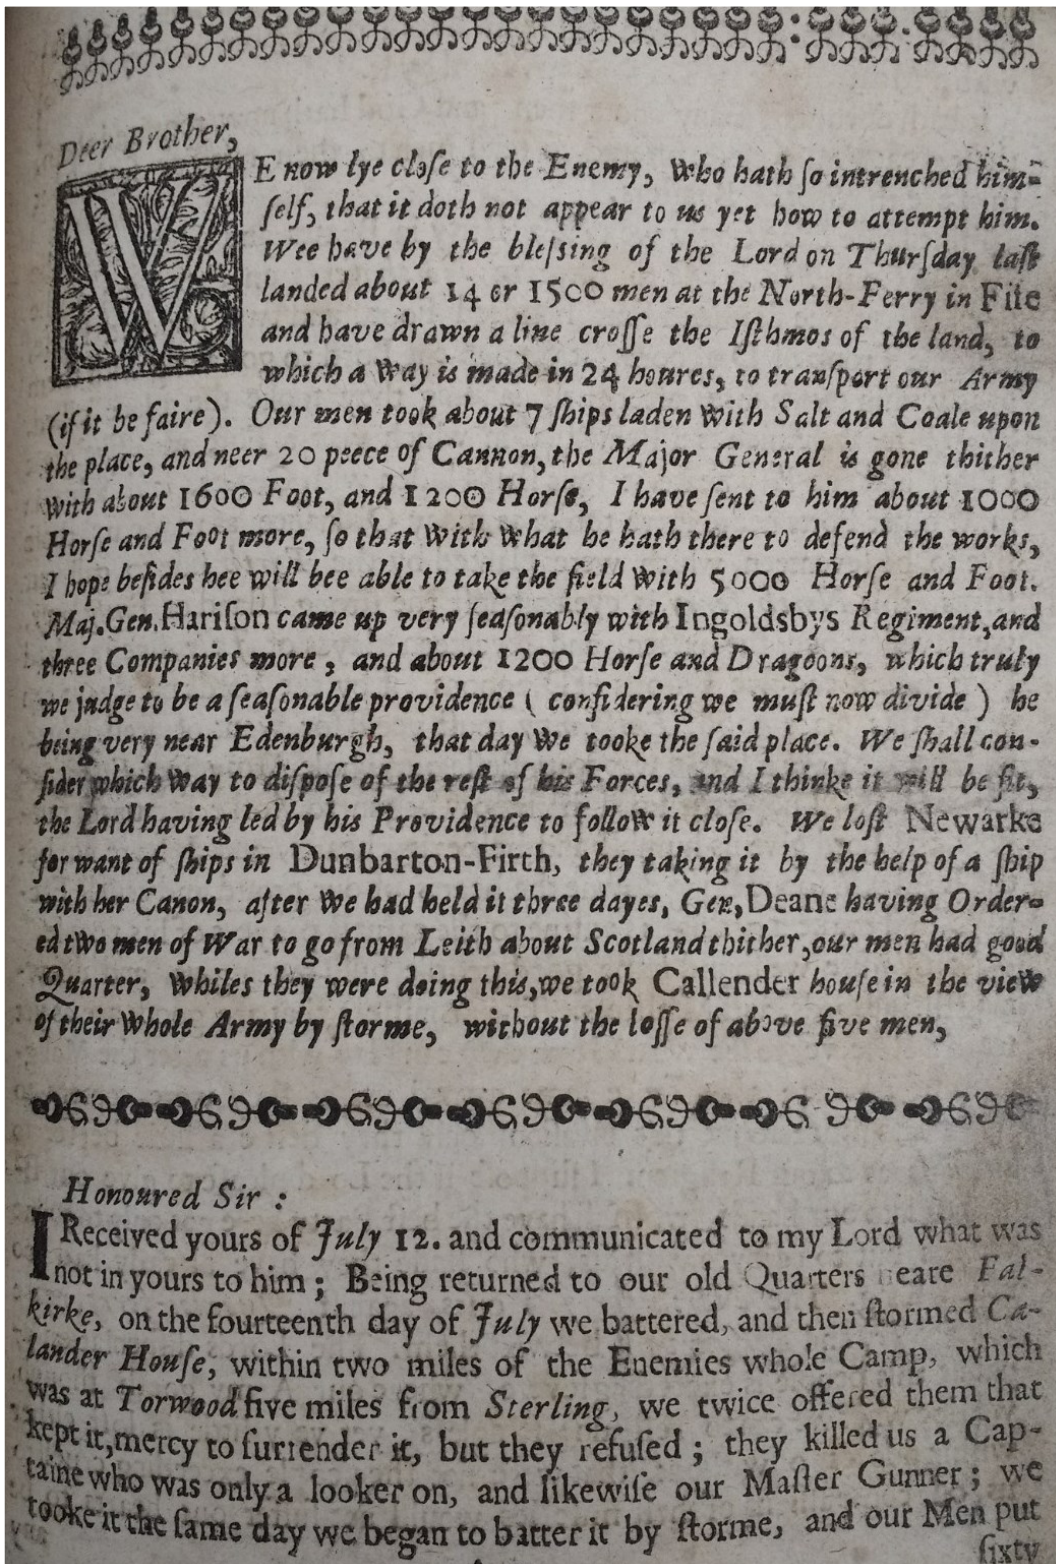 Deer Brother,
WE now lye close to the Enemy, who hath so intrenched him-
self, that it doth not appear to us yet how to attempt him.
Wee have by the blessing of the Lord on Thursday last
landed about 14 or 1500 men at the North-Ferry in Fife
and have drawn a line crosse the Isthmos of the land, to
which a way is made in 24 houres, to transport our Army
(if it be faire). Our men took about 7 ships laden with Salt and Coale upon
the place, and neer 20 peece of Cannon, the Major General is gone thither
with about 1600 Foot, and 1200 Horse, I have sent to him about 1000
Horse and Foot more, so that with what he hath there to defend the works,
I hope besides hee will bee able to take the field with 5000 Horse and Foot.
Maj. Gen. Harison came up very seasonably with Ingoldsbys Regiment, and
three Companies more, and about 1200 Horse and Dragoons, which truly
we judge to be a seasonable providence ( considering we must now divide ) he
being very near Edenburgh, that day we tooke the said place. We shall con-
sider which way to dispose of the rest of his Forces, and I thinke it will be fit,
the Lord having led by his Providence to follow it close. We lost Newarke
for want of ships in Dunbarton-Firth, they taking it by the help of a ship
with her Canon, after we had held it three dayes, Gen, Deane having Order-
ed two men of War to go from Leith about Scotland thither, our men had good
Quarter, whiles they were doing this, we took Callender house in the view
of their whole Army by storme, without the losse of above five men,
Honoured Sir :
I Received yours of July 12. and communicated to my Lord what was
not in yours to him ; Being returned to our old Quarters neare Fal-
kirke, on the fourteenth day of July we battered, and then stormed Ca-
lander House, within two miles of the Enemies whole Camp, which
was at Torwood five miles from Sterling, we twice offered them that
kept it, mercy to surrender it, but they refused ; they killed us a Cap-
taine who was only a looker on, and likewise our Master Gunner ; we
tooke it the same day we began to batter it by storme, and our Men put
sixty